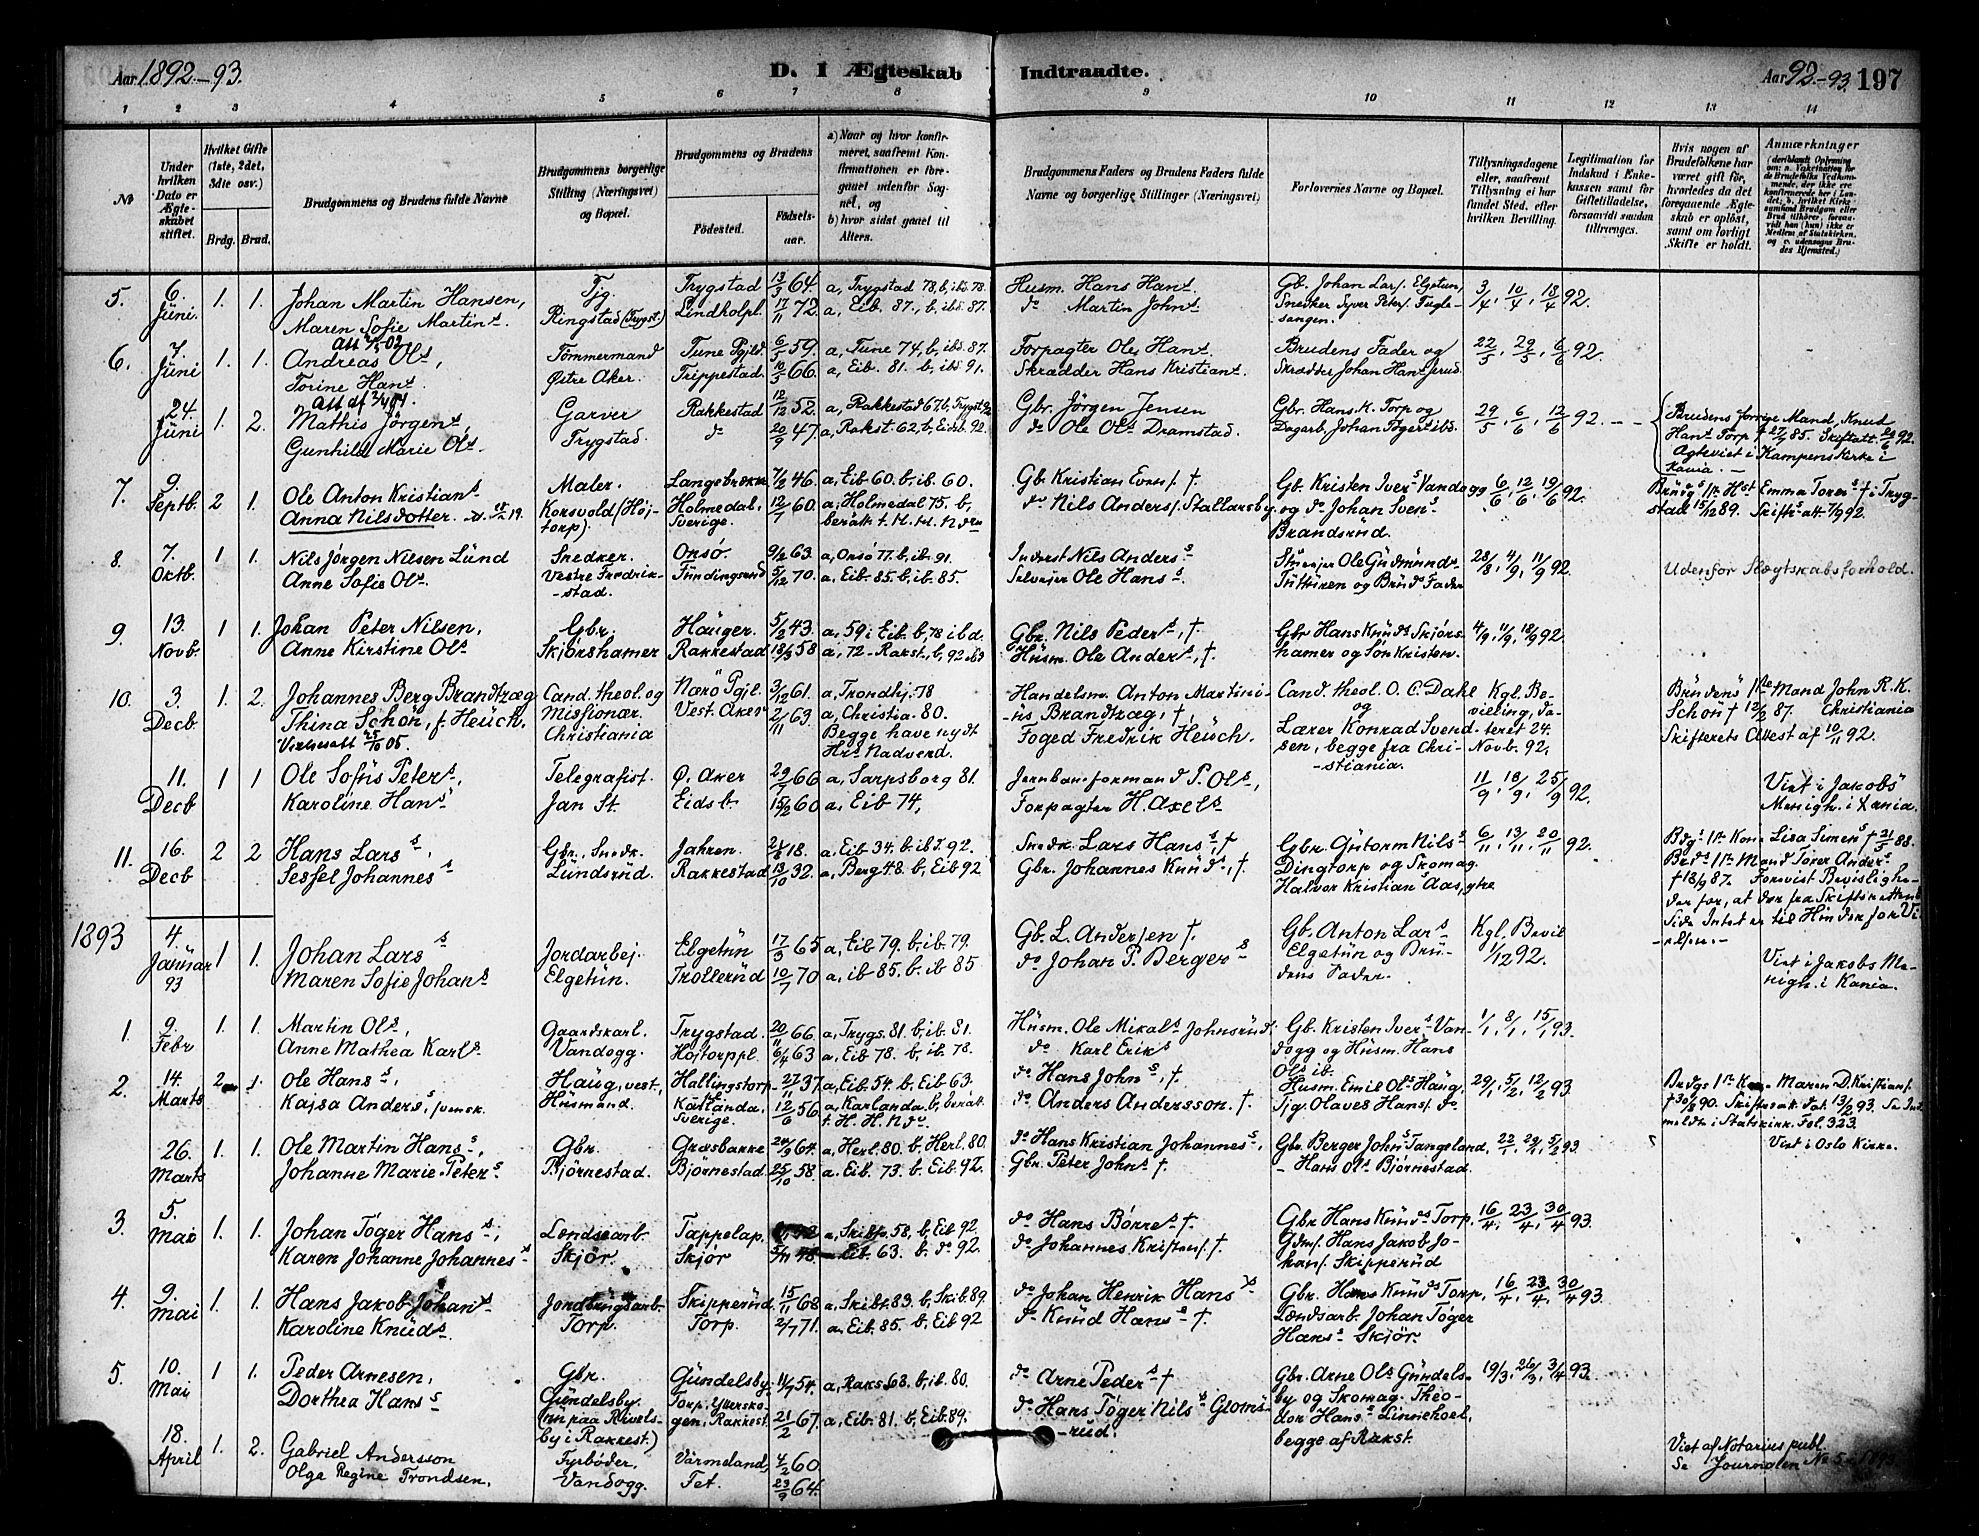 Aar 1892-93. D. I Ægteskab Indtraadte. Aar 92-93. 197
1 2 3 4 5 6 7 8 9 10 11 12 13 14
No
Under hvilken Dato er Ægteskabet stiftet.
Hvilket Gifte (1ste, 2det, 3die osv.)
Brdg. Brud.
Brudgommens og Brudens fulde Navne
Brudgommens borgerlige Stilling (Næringsvei) og Bopæl.
Brudgommens og Brudens
Födested. Födsels-aar.
a) Naar og hvor konfirmeret, saafremt Konfirmationen er foregaaet udenfor Sognet, og
b) hvor sidst gaaet til Alters.
Brudgommens Faders og Brudens Faders fulde Navne og borgerlige Stillinger (Næringsvei)
Forlovernes Navne og Bopæl.
Tillysningsdagene eller, saafremt Tillysning ei har fundet Sted, efter hvilken Bevilling.
Legitimation for Indskud i Enkekassen samt for Giftetilladelse, forsaavidt saadan tiltrænges.
Hvis nogen af Brudefolkene har været gift før, hvorledes da det foregaaende Ægteskab er oplöst, samt om lovligt Skifte er holdt.
Anmærkninger
5. 6. Juni 1. 1. Johan Martin Hansen, Tjg. Trygstad 13/3 64. a, Trygstad 78, b, ibd. 78. Husm. Hans Hans. Gb. Johan Lars. Elgetun, 3/4, 10/4, 18/4 92.
Maren Sofie Martins. Ringstad (Trygst.) Lindholpl. 17/11 72. a, Eib. 87., b, ibd. 87. do Martin Johns. Snedker Syver Peters. Fuglesangen.
6. 7. Juni 1. 1. Andreas Ols., Tømmermand Tune Pgjld. 6/5 59. a, Tune 74, b, ibd. 87. Forpagter Ole Hans. Brudens Fader og 22/5, 29/5, 6/6 92.
Torine Hans. Østre Aker. Trippestad. 10/5 66. a, Eib. 81. b, ibd. 91. Skrædder Hans Kristians. Skrædder Johan Hans. Jerud.
24. Juni 1. 2. Mathis Jörgens, Garver Rakkestad 12/12 52. a, Rakkestad 67. b, Trygst. 92 Gbr. Jörgen Jensen Gbr. Hans K. Torp og 29/5, 6/6, 12/6 92. - - Brudens forrige Mand, Knud
Gunhild Marie Ols. Trygstad. do 20/9 47. a, Rakst. 62, b, Eidsb. 92. do Ole Ols. Dramstad. Dagarb. Johan Tøgers. ibd. Hans. Torp † 27/7 85. Skifteatt. 20/6 92.
Ægteviet i Kampens Kirke i Kania. -
7. 9. Septb. 2 1. Ole Anton Kristians Maler. Langebrække 7/2 46. a, Eib 60. b. ib. 60. Gb. Kristian Evens. †. Gb. Kristen Ivers. Vandogg 6/6, 12/6, 19/6 92. Brudg.s 1st. Hst. Emma Tores. † i Tryg-
Anna Nilsdotter. Korsvold (Højtorp). Holmedal, Sverige. 12/7 60. a, Holmedal 75. b, do Nils Anders. Stallarsby. og do Johan Svens. Brandsrud. stad 15/12 89. Skifts. att. 7/9 92.
8. 7. Octb. 1 1. Nils Jörgen Nilsen Lund Snedker. Onsø. 9/2 63. a, Onsø 77. b, ib. 91. Inderst Nils Anders. 28/8, 4/9, 11/9 92. Udenfor Slægtskabsforhold.
Anne Sofie Ols. Vestre Fredrikstad. 5/12 70. a, Eib. 85. b, ib. 85. Selveier Ole Hans. Tuttüren og Brud. Fader
9. 13. Novb. 1 1. Johan Peter Nilsen, Gbr. Hauger. 5/2 43. a, 59 i Eib. b, 78 ibd. Gbr. Nils Peders., †. Gbr Hans Knuds Skjørs- 4/9, 11/9, 18/9 92.
Anne Kirstine Ols. Skjørshamer Rakkestad 18/3 58 a, 72 - Rakst., b, 92 ibd Husm. Ole Anders., †. hamer og Søn Kristen.
10. 3. Decb 1. 2. Johannes Berg Brandtzæg Cand. theol. og Nærö Pgjl. 3/12 61. a, Trondhj. 78 Handelsm. Anton Martini- Cand. theol. O. C. Dahl Kgl. Be- Brudens 1ste Mand John R. K.
Thina Schön, f. Heuch. Missionær. Vest. Aker 2/11 63. a, Christia. 80. us Brandtzæg, †. og villing, da- Schön † 12/2 87. Christiania
Vielsesatt 25/10 05. Christiania Begge have nydt Hrs Nadverd. Foged Fredrik Heuch. Lærer Konrad Svendsen, begge fra Christiania. teret 24. Novb. 92. Skifterets Attest af 10/11 92.
11. Decb 1 1 Ole Sofus Peters., Telegrafist. Ø. Aker 29/7 66 a, Sarpsborg 81. Jernbaneformand P. Ols., 11/9, 18/9, 25/9 92. Viet i Jakobs
Karoline Hans. Jan St. Eidsb. 15/2 60 a, Eib 74, Forpagter H. Axels. Menigh. i Kania.
11. 16. Decb 2 2 Hans Lars., Gbr. Snedk. Jahren. 18. a, Eib 34. b, ibd. 92. Snedk. Lars Hans., † Gbr. Gutorm Nils. 6/11, 13/11, 20/11 92. Bdgs 1st. Kone Lisa Simens † 21/5 88.
Sessel Johannes. Lundsrud. Rakkestad 13/10 32. a, Berg 48. b, Eib 92 Gbr. Johannes Knuds., †. Dingtorp og Skomag. Halvor Kristian Aas, ytre Brds 1st. Mand Torer Anders. † 18/9 87. Forevist Bevislighe-
der for, at der fra Skifterettens Side Intet er til Hinder for Vielsen. -
1893 4. Januar 93 1 1. Johan Lars. Jordarbej. Elgetun 17/3 65 a, Eib 79. b. ib. 79. Gb. L. Andersen †. Gb. Anton Lars. Kgl. Bevil 1/12 92. Viet i Jakobs Me-
Maren Sofie Johans. Elgetun. Trollerud 10/7 70 a, ib 85. b. ib 85 do Johan P. Bergers. Elgetun og Brudens Fader. nigh. i Kania.
1. 9. Febr 1. 1. Martin Ols., Gaardskarl. Trygstad. 20/11 66 a, Trygs. 81. b, ib. 81. Husm. Ole Mikals. Johnsrud. Gb. Kristen Ivers. Van- 1/1, 8/1, 15/1 93.
Anne Mathea Karls. Vandogg. Højtorppl. 6/4 63 a, Eib 78. b, ib. 78. do Karl Eriks dogg og Husm. Hans Ols ib.
2. 14. Marts 2 1. Ole Hans., Haug, vest., Hallingstorp 27/11 37 a, Eib. 54. b. Eib 63. do Hans Johns., †. Husm. Emil Ols Haug, 29/1, 5/2, 12/2 93. Brdgs 1st Kone Maren D. Kristians.
Kajsa Anders., svensk. Husmand. Karlanda, Sverige. 12/6 56 a, Karlanda. b, berätt. t. H. H. N do. do Anders Andersson. †. Tjg. Olaves Hans. do † 30/8 90. Skifteatt. dat. 13/2 93. Se Indmeldte i Statskirk. fol. 323.
26. Marts 1. 1. Ole Martin Hans., Gbr. Græsbakke 64. a, Herl. 80. b. Herl. 80. do Hans Kristian Johannes., Gbr. Berger Johns. Tangeland, 22/1, 29/1, 5/2 93 Viet i Oslo Kirke.
Johanne Marie Peters. Bjørnestad. Bjørnestad. 25/10 58. a. Eib. 73. b. Eib. 92. Gbr. Peter Johns. †. - Hans Ols. Bjørnestad.
3. 5. Mai 1. 1. Johan Tøger Hans., Lændsearb. Tappelap. a, Skibtv. 58, b, Eib 92 do Hans Børres. †. Gbr Hans Knuds Torp. 16/4, 23/4, 30/4 93.
Karen Johanne Johannes. Skjør. Skjør a, Eib. 63. b. do 92. do Johannes Kristens. †. Gdms. Hans Jakob Johans. Skipperud
4. 9. Mai 1. 1. Hans Jakob Johans. Jordbrugsarb. Skipperud. 15/11 68 a, Skibtv. 83. b, Skib. 89 do Johan Henrik Hans. Gbr. Hans Knuds Torp, 16/4, 23/4, 30/4 93.
Karoline Knuds. Torp. Torp. 2/7 71. a, Eib. 85. b, Eib 92 do Knud Hans. †. Lændsarb. Johan Tøger Hans. Skjør.
5. 10. Mai 1 1. Peder Arnesen, Gbr. Gundelsby. 11/7 54. a, Rakst. 68. b, ib. 80. do Arne Peders. † Gbr. Arne Ols Gundels- 19/3, 26/3, 3/4 93
Dorthea Hans. Gundelsby (nu paa Rivelsby i Rakkest.) Torp, Ytterskogen, Rakkest. 21/2 67. a, Eib. 81. b, Eib. 89. do Hans Tøger Nils. Glomsrud. by og Skomag. Theodor Hans. Linnehoel, begge af Rakst.
18. April 1. 2. Gabriel Andersson Fyrbøder. Värmeland, 4/2 60 Viet af Notarius publ.
Olga Regine Trondsen. Vandogg. Fet. 23/9 64. Se Journalen No 5 1893.